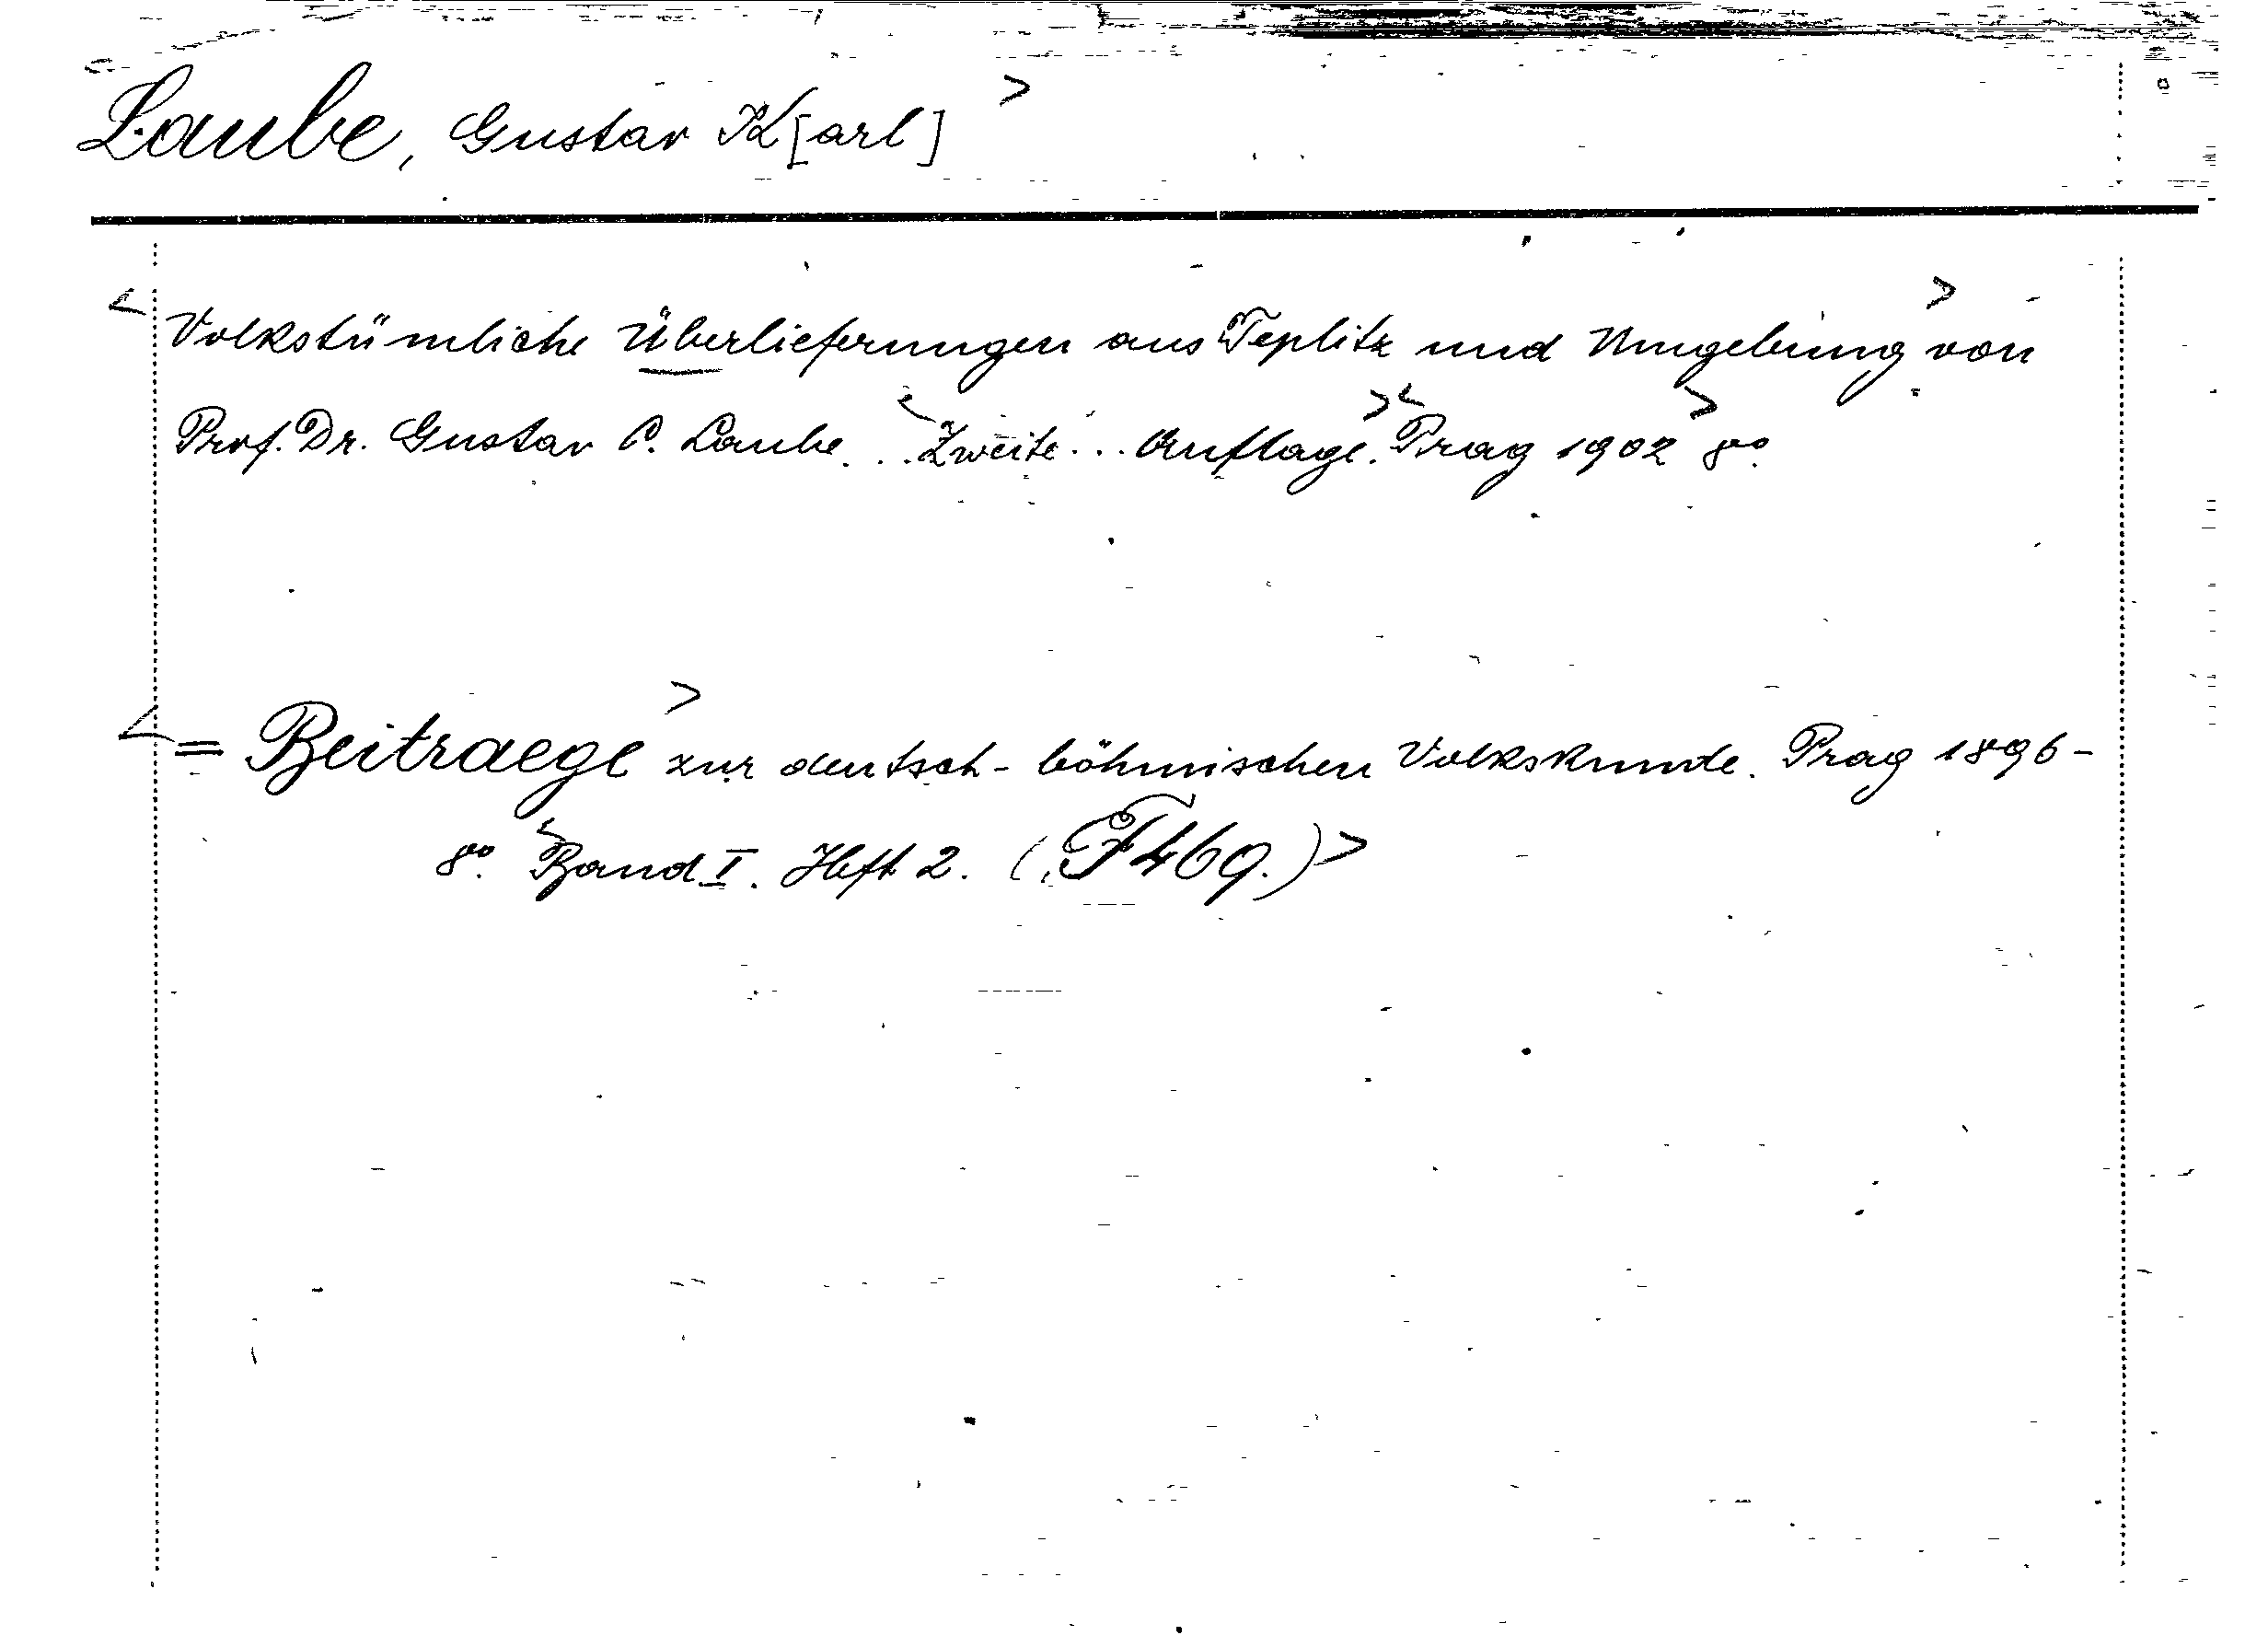 Laube, Gustav K[arl] >
< Volkstümliche Überlieferungen aus Teplitz und Umgebung > von
Prof. Dr. Gustav C. Laube. . . < Zweite . . . Auflage. > < Prag 1902 > 8°.
< = Beitraege > zur deutsch-böhmischen Volkskunde. Prag 1896-
8°. < Band I. Heft 2. (F 469.) >